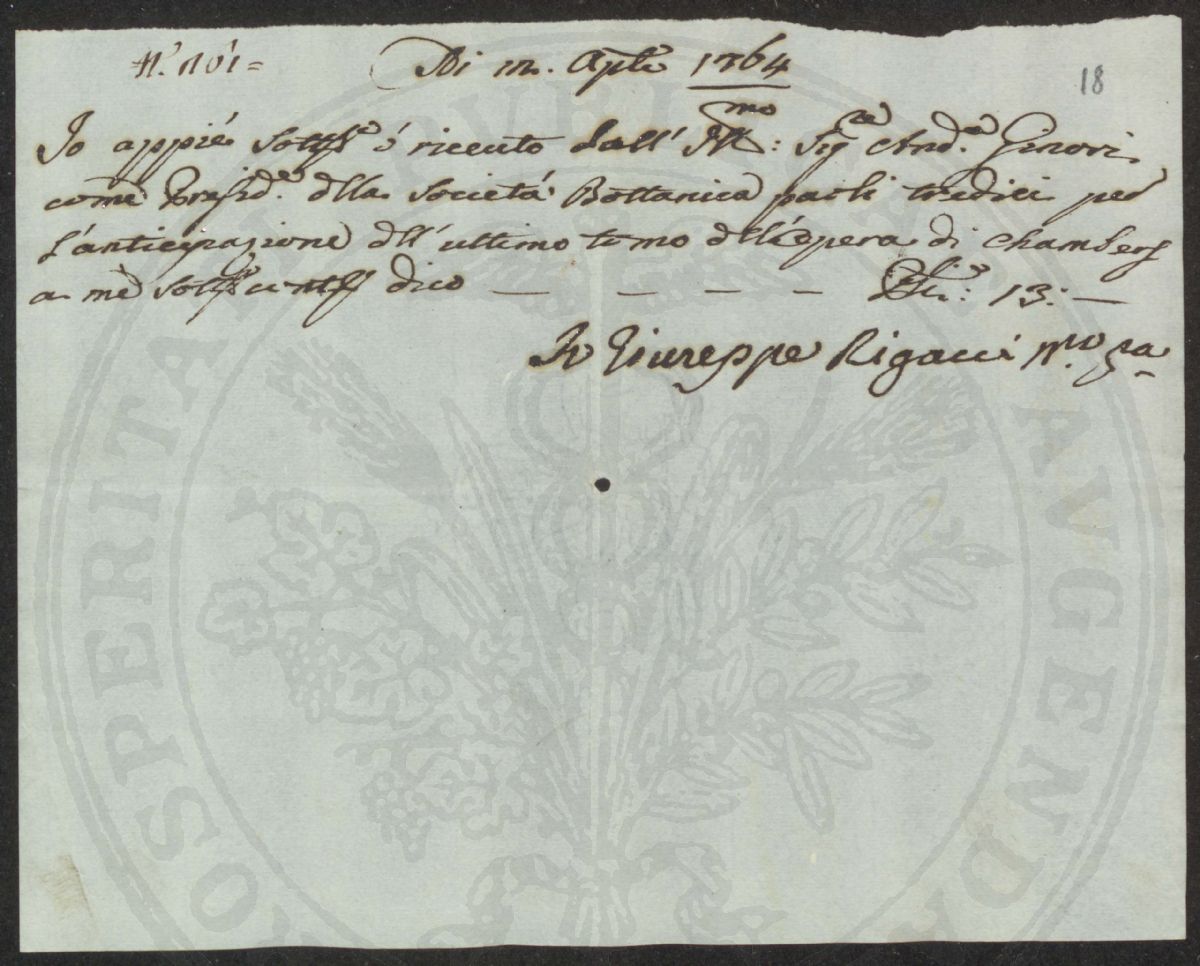 N.° 101=
Di 12. Ap.le 1764
18
Io appiè sotto ò riceuto dall' Ill.mo: Sig.re And.a Ginori
come Presid.e della Società Bottanica paoli tredici per
l'anticipazione dell'ultimo tomo dell'opera di Chambers
a me contti dico — — — — 13: —
Io Giuseppe Rigacci M.o
PROSPERITATI PVBLICAE AVGENDAE